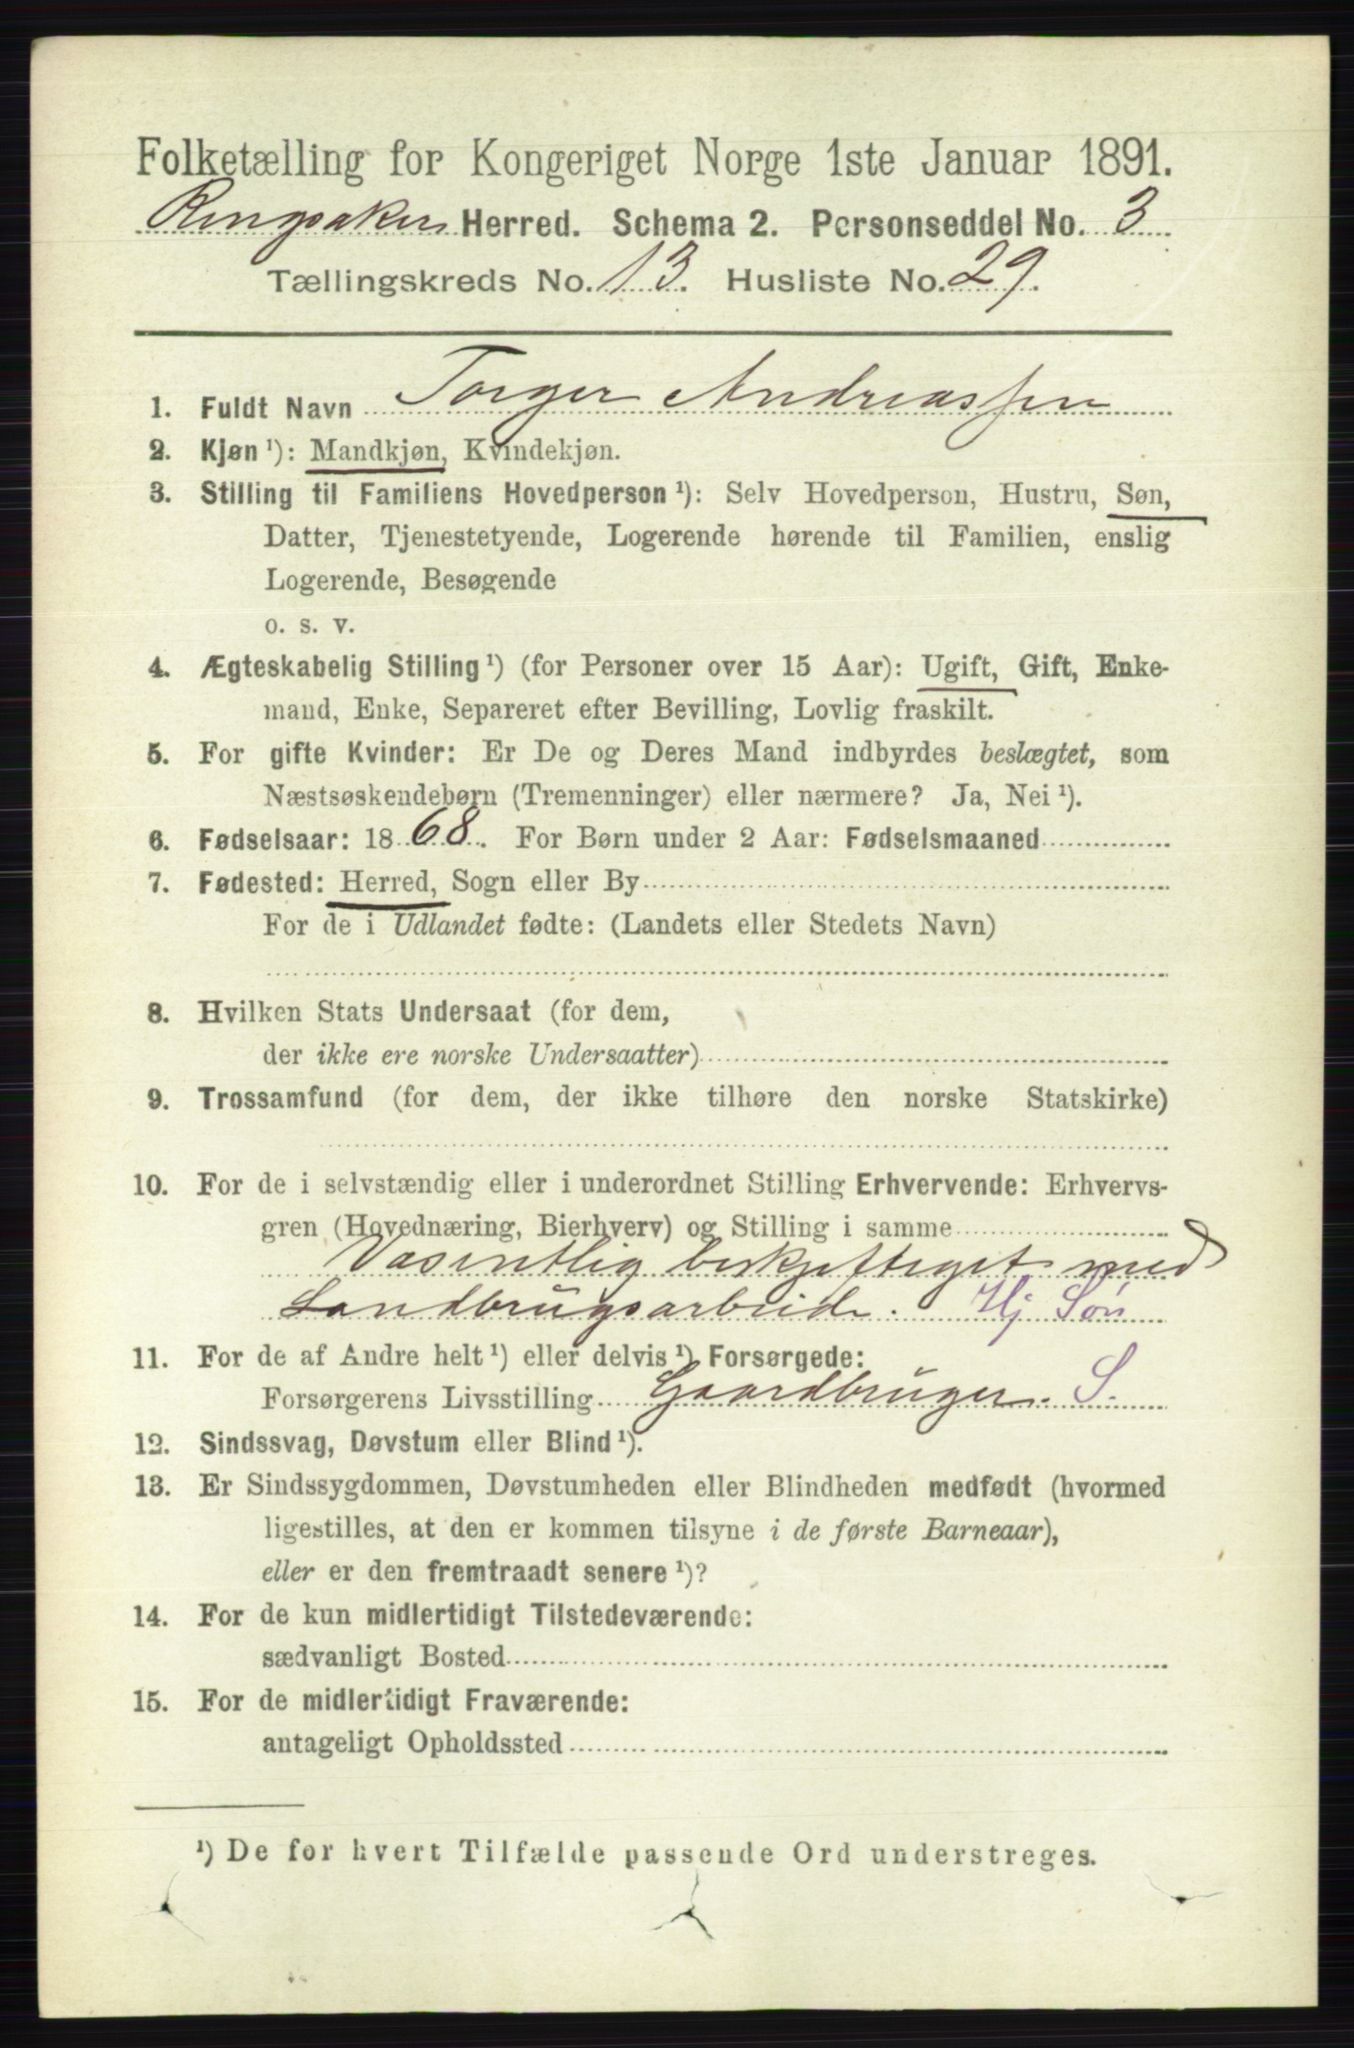 Folketælling for Kongeriget Norge 1ste Januar 1891.
Ringsaker Herred. Schema 2. Personseddel No. 3
Tællingskreds No. 13. Husliste No. 29.
1. Fuldt Navn Torger Andreassen
2. Kjøn ¹): Mandkjøn, Kvindekjøn.
3. Stilling til Familiens Hovedperson ¹): Selv Hovedperson, Hustru, Søn,
Datter, Tjenestetyende, Logerende hørende til Familien, enslig
Logerende, Besøgende
o. s. v.
4. Ægteskabelig Stilling ¹) (for Personer over 15 Aar): Ugift, Gift, Enke-
mand, Enke, Separeret efter Bevilling, Lovlig fraskilt.
5. For gifte Kvinder: Er De og Deres Mand indbyrdes beslægtet, som
Næstsøskendebørn (Tremenninger) eller nærmere? Ja, Nei ¹).
6. Fødselsaar: 1868. For Børn under 2 Aar: Fødselsmaaned
7. Fødested: Herred, Sogn eller By
For de i Udlandet fødte: (Landets eller Stedets Navn)
8. Hvilken Stats Undersaat (for dem,
der ikke ere norske Undersaatter)
9. Trossamfund (for dem, der ikke tilhøre den norske Statskirke)
10. For de i selvstændig eller i underordnet Stilling Erhvervende: Erhvervs-
gren (Hovednæring, Bierhverv) og Stilling i samme
Vasentlig beskjeftiget med
Landbrugsarbeide. Hj Søn
11. For de af Andre helt ¹) eller delvis ¹) Forsørgede:
Forsørgerens Livsstilling Gaardbruger. S.
12. Sindssvag, Døvstum eller Blind ¹).
13. Er Sindssygdommen, Døvstumheden eller Blindheden medfødt (hvormed
ligestilles, at den er kommen tilsyne i de første Barneaar),
eller er den fremtraadt senere ¹)?
14. For de kun midlertidigt Tilstedeværende:
sædvanligt Bosted
15. For de midlertidigt Fraværende:
antageligt Opholdssted
¹) De for hvert Tilfælde passende Ord understreges.